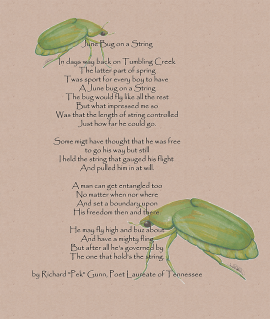 June Bug on a String
In days way back on Tumbling Creek
The latter part of spring
T was sport for every boy to have
A June bug on a String
The bug would fly like all the rest
But what impressed me so
Was that the length of string controlled
Just how far he could go.
Some migt have thought that he was free
to go his way but still
I held the string that gauged his flight
And pulled him in at will.
A man can get entangled too
No matter when nor where
And set a boundary upon
His freedom then and there
He may fly high and buz about
And have a mighty fling
But after all he's governed by
The one that hold's the string.
by Richard "Pek" Gunn, Poet Laureate of Tennessee